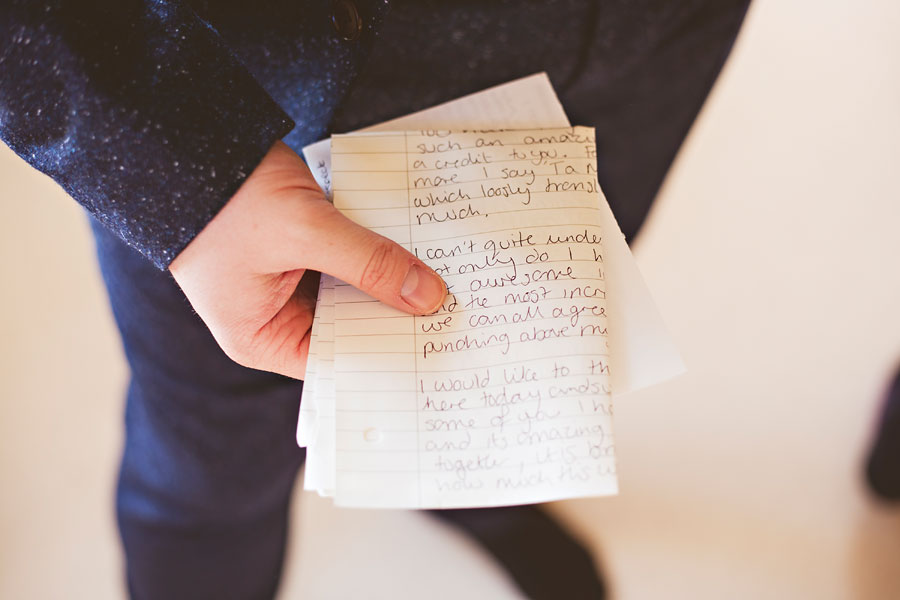 such an amazi
a credit to you. F
more I say Ta M
which loosly transl
much.
I can't quite unde
not only do I h
awesome i
and the most incr
we can all agree
punching above m
I would like to th
here today and su
some of you I ha
and its amazing
together, it is
how much this w